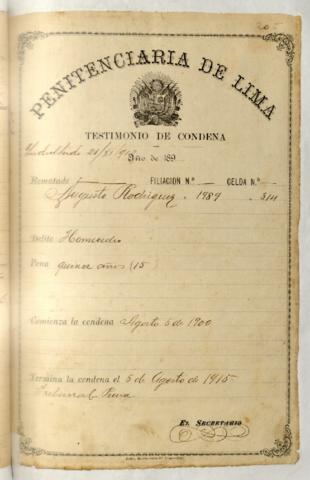 PENITENCIARIA DE LIMA
TESTIMONIO DE CONDENA
Año de 189
Rematado FILIACION N.º CELDA N.º
Augusto Rodriguez . 1989 . 314
Delito Homicidio
Pena quince años (15
Comienza la condena Agosto 5 de 1900
Termina la condena el 5 de Agosto de 1915
Tribunal Piura
EL SECRETARIO